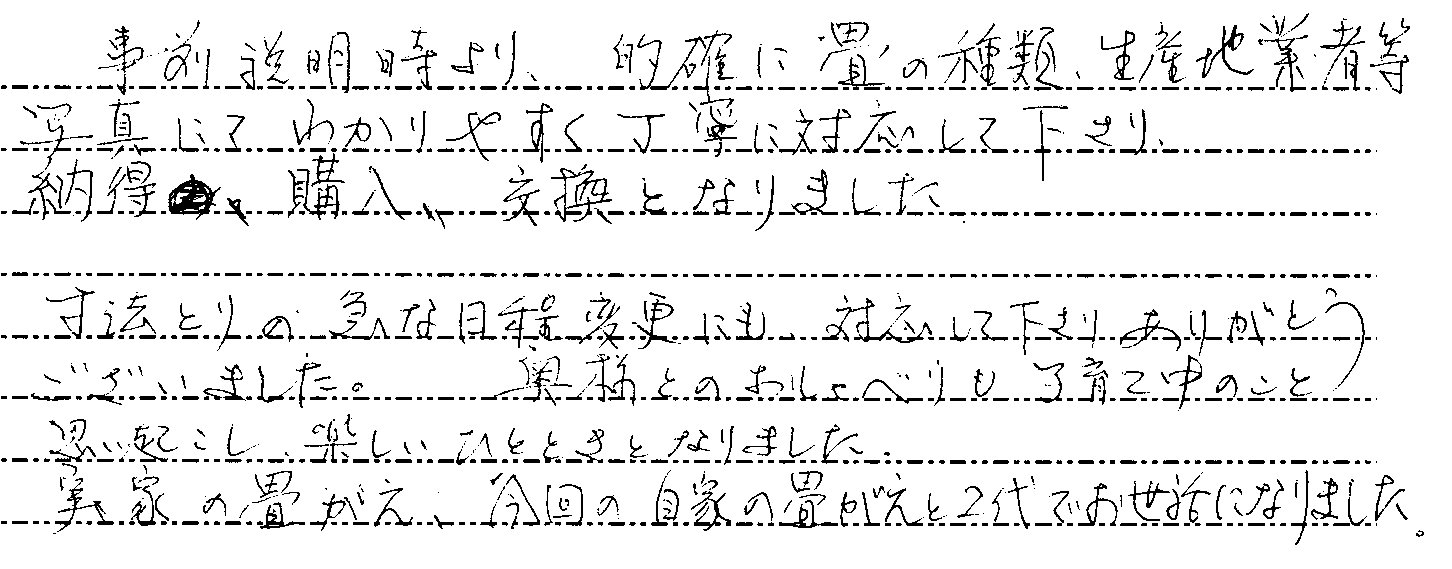 事前説明時より、的確に畳の種類、生産地業者等
写真にてわかりやすく丁寧に対応して下さり、
納得、購入、交換となりました
寸法とりの急な日程変更にも、対応して下さりありがとう
ございました。 奥様とのおしゃべりも子育て中のこと
思い起こし、楽しいひとときとなりました。
実家の畳がえ、今回の自家の畳がえと2代でお世話になりました。